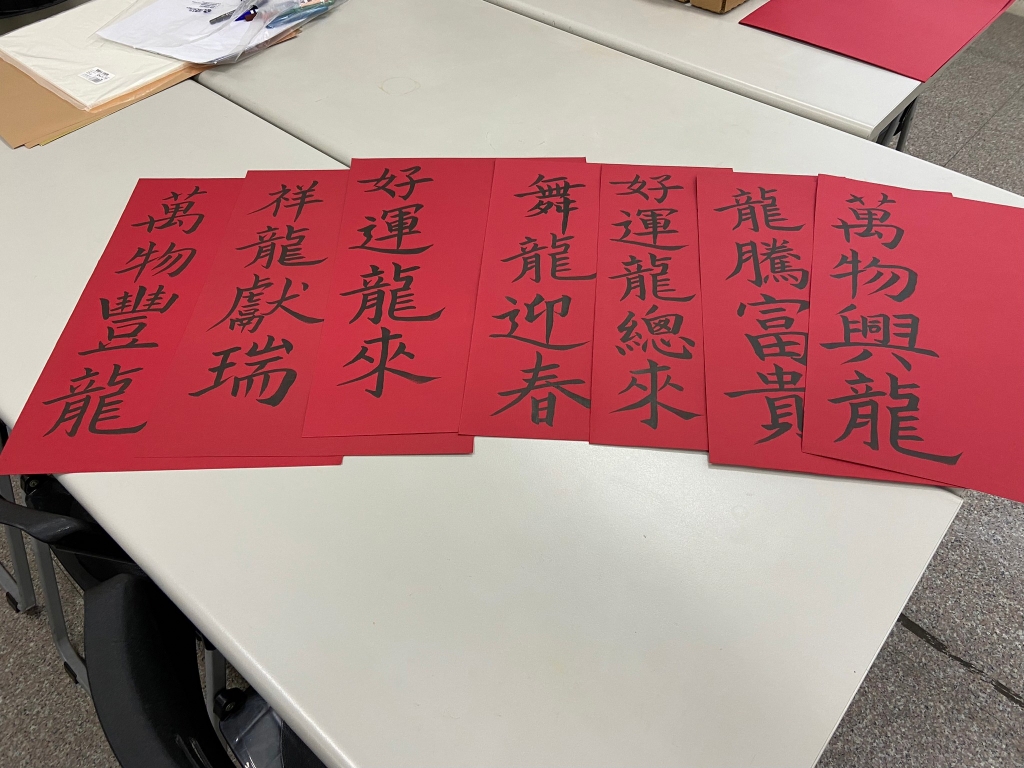 萬物豐龍
祥龍獻瑞
好運龍來
舞龍迎春
好運龍總來
龍騰富貴
萬物興龍